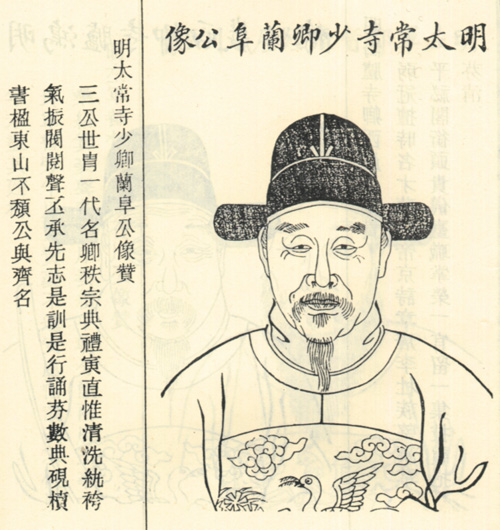 明太常寺少卿蘭阜公像
明太常寺少卿蘭阜公像贊
三公世冑一代名卿秩宗典禮寅直惟清洗紈袴
氣振閥閱聲丕承先志是訓是行誦芬數典硯櫝
書楹東山不頹公與齊名